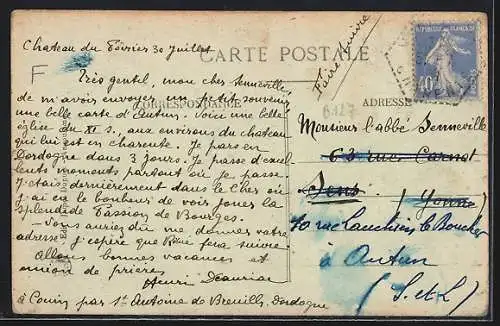 Chateau du Février 30 juillet
F
Très gentil, mon cher Senneville,
de m'avoir envoyer un petit souvenir
une belle carte d'Autun. Voici une belle
église du XI s., aux environs du chateau
qui lui est en charente. Je pars en
Dordogne dans 3 jours. Je passe d'excel
lents moments partout où je passe.
J'étais dernièrement dans le Cher où
j'ai eu le bonheur de voir jouer la
splendide Passion de Bourges.
Vous auriez dû me donner votre
adresse j'espère que fera suivre.
Allons bonnes vacances et
union de prières
Henri
à par St Antoine de Breuilh, Dordogne
CARTE POSTALE
CORRESPONDANCE
ADRESSE
Faire suivre
REPUBLIQUE FRANÇAISE
40
Monsieur l'abbé Senneville
63 rue Carnot
Sens
(Yonne)
10 rue Lauchien le Boucher
à Autun
(S. et L)